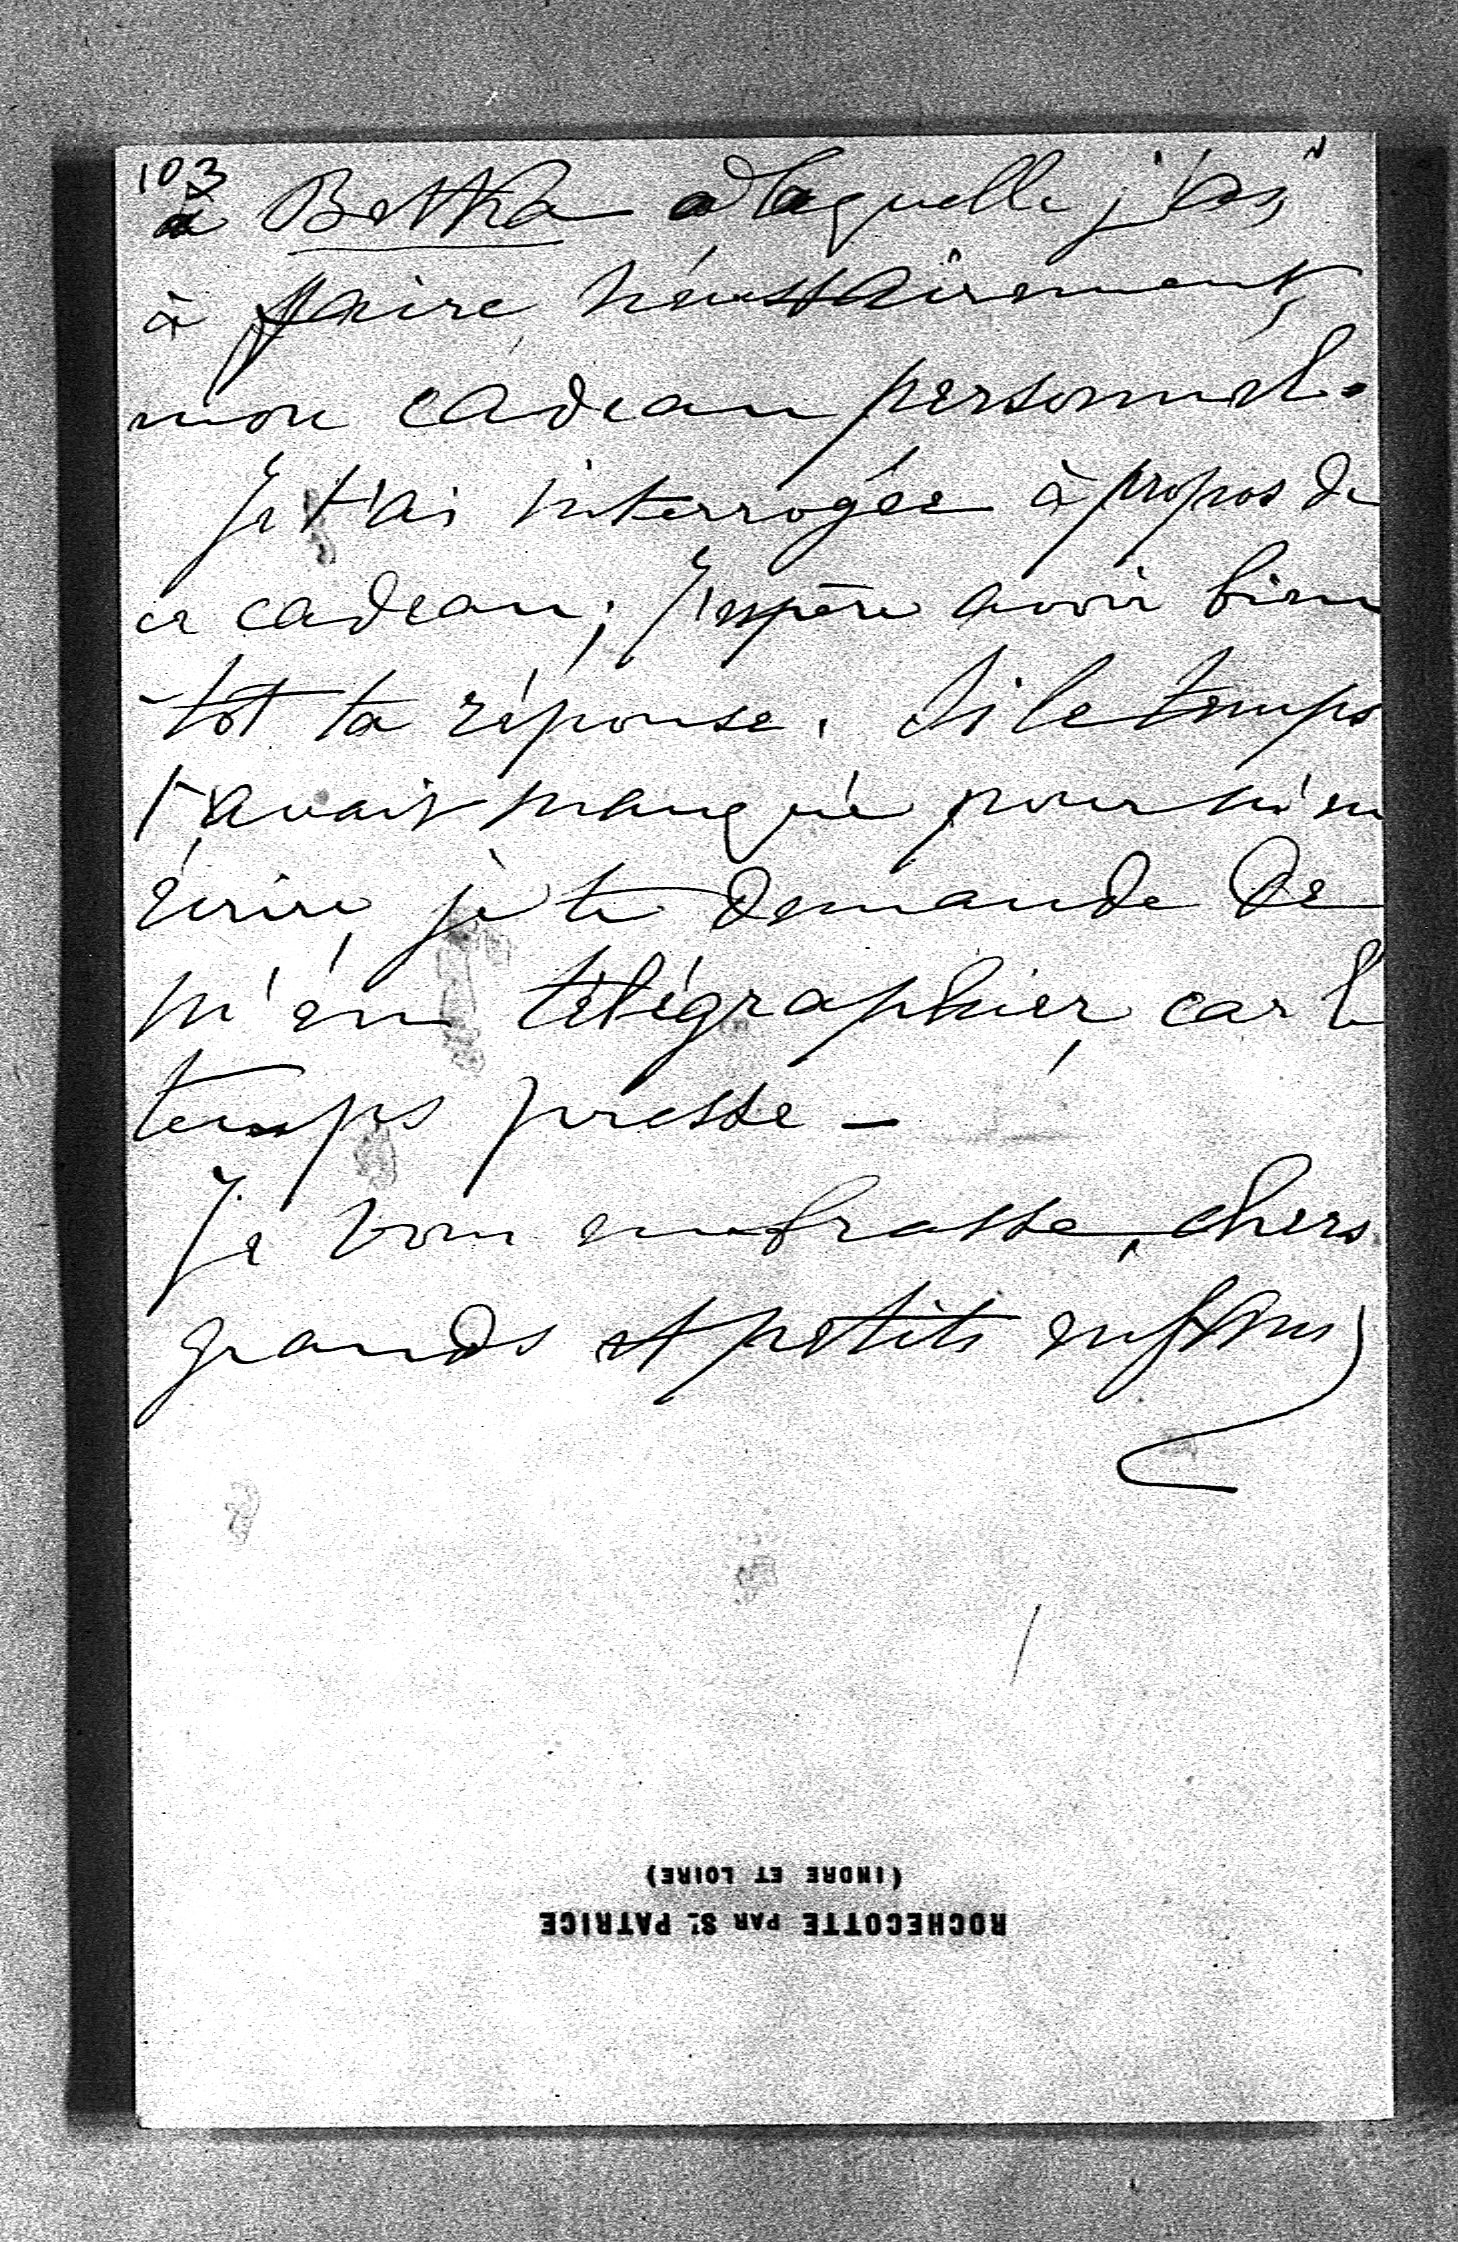 103
à Betka à laquelle j'ai,
à faire nécessairement,
mon cadeau personnel.
Je t'ai interrogée à propos de
ce cadeau; j'espère avoir bien
-tôt ta réponse. Si le temps
t'avait manqué pour m'en
écrire, je te demande de
m'en télégraphier, car le
temps presse -
Je vous embrasse, chers
grands et petits enfans
ROCHECOTTE PAR ST. PATRICE
(INDRE ET LOIRE)